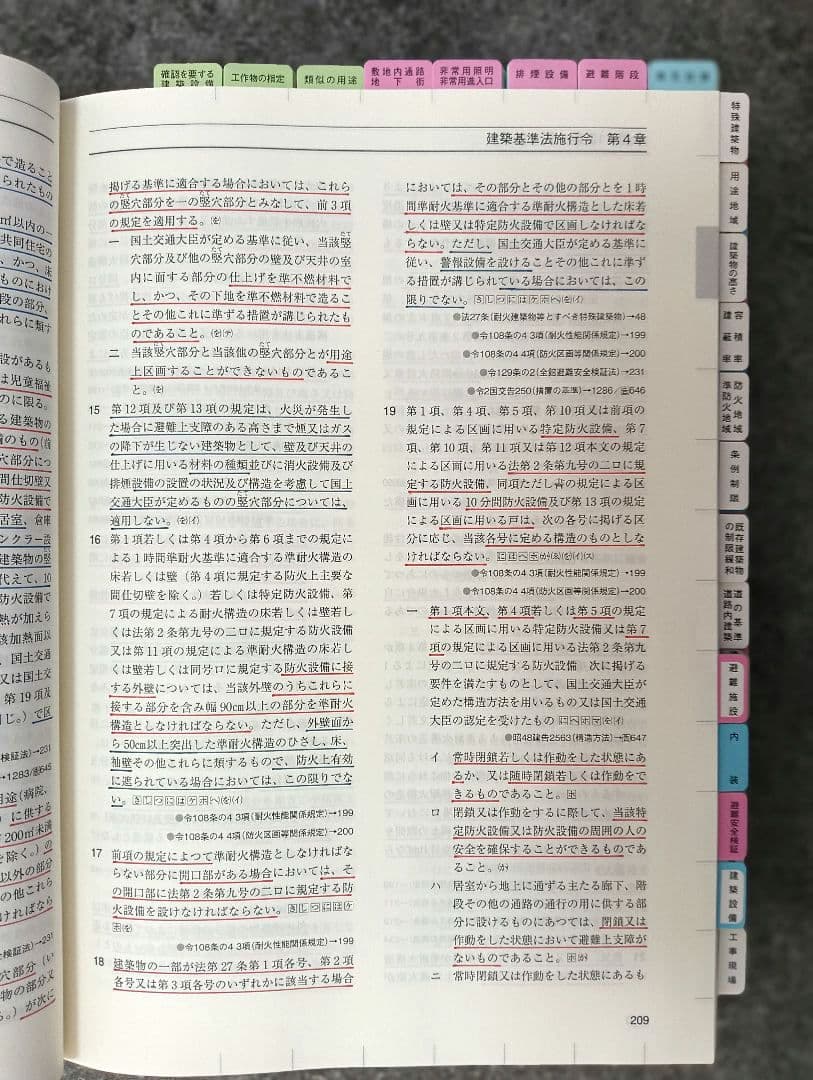 確認を要する
建築設備
工作物の指定
類似の用途
敷地内通路
地下街
非常用照明
非常用進入口
排煙設備
避難階段
建築基準法施行令 第4章
掲げる基準に適合する場合においては、これら
の竪穴部分を一の竪穴部分とみなして、前3項
の規定を適用する。
一 国土交通大臣が定める基準に従い、当該竪
穴部分及び他の竪穴部分の壁及び天井の室
内に面する部分の仕上げを準不燃材料で
し、かつ、その下地を準不燃材料で造るこ
とその他これに準ずる措置が講じられたも
のであること。
二 当該竪穴部分と当該他の竪穴部分とが用途
上区画することができないものであるこ
と。
15 第12項及び第13項の規定は、火災が発生し
た場合に避難上支障のある高さまで煙又はガス
の降下が生じない建築物として、壁及び天井の
仕上げに用いる材料の種類並びに消火設備及び
排煙設備の設置の状況及び構造を考慮して国土
交通大臣が定めるものの竪穴部分については、
適用しない。
16 第1項若しくは第4項から第6項までの規定に
よる1時間準耐火基準に適合する準耐火構造の
床若しくは壁(第4項に規定する防火上主要な
間仕切壁を除く。)若しくは特定防火設備、第
7項の規定による耐火構造の床若しくは壁若し
くは法第2条第九号の二ロに規定する防火設備
又は第11項の規定による準耐火構造の床若し
くは壁若しくは同号ロに規定する防火設備に接
する外壁については、当該外壁のうちこれらに
接する部分を含み幅90cm以上の部分を準耐火
構造としなければならない。ただし、外壁面か
ら50cm以上突出した準耐火構造のひさし、床、
袖壁その他これらに類するもので、防火上有効
に遮られている場合においては、この限りでな
い。
●令108条の4 3項(耐火性能関係規定)→199
●令108条の4 4項(防火区画等関係規定)→200
17 前項の規定によつて準耐火構造としなければな
らない部分に開口部がある場合においては、そ
の開口部に法第2条第九号の二ロに規定する防
火設備を設けなければならない。
●令108条の4 3項(耐火性能関係規定)→199
18 建築物の一部が法第27条第1項各号、第2項
各号又は第3項各号のいずれかに該当する場合
においては、その部分とその他の部分とを1時
間準耐火基準に適合する準耐火構造とした床若
しくは壁又は特定防火設備で区画しなければな
らない。ただし、国土交通大臣が定める基準に
従い、警報設備を設けることその他これに準ず
る措置が講じられている場合においては、この
限りでない。
●法27条(耐火建築物等とすべき特殊建築物)→48
●令108条の4 3項(耐火性能関係規定)→199
●令108条の4 4項(防火区画等関係規定)→200
●令129条の2(全館避難安全検証法)→231
●令2国交告250(措置の基準)→1286/画646
19 第1項、第4項、第5項、第10項又は前項の
規定による区画に用いる特定防火設備、第7
項、第10項、第11項又は第12項本文の規定
による区画に用いる法第2条第九号の二ロに規
定する防火設備、同項ただし書の規定による区
画に用いる10分間防火設備及び第13項の規定
による区画に用いる戸は、次の各号に掲げる区
分に応じ、当該各号に定める構造のものとしな
ければならない。
●令108条の4 3項(耐火性能関係規定)→199
●令108条の4 4項(防火区画等関係規定)→200
一 第1項本文、第4項若しくは第5項の規定
による区画に用いる特定防火設備又は第7
項の規定による区画に用いる法第2条第九
号の二ロに規定する防火設備 次に掲げる
要件を満たすものとして、国土交通大臣が
定めた構造方法を用いるもの又は国土交通
大臣の認定を受けたもの
●昭48建告2563(構造方法)→画647
イ 常時閉鎖若しくは作動をした状態にあ
るか、又は随時閉鎖若しくは作動をで
きるものであること。
ロ 閉鎖又は作動をするに際して、当該特
定防火設備又は防火設備の周囲の人の
安全を確保することができるものであ
ること。
ハ 居室から地上に通ずる主たる廊下、階
段その他の通路の通行の用に供する部
分に設けるものにあつては、閉鎖又は
作動をした状態において避難上支障が
ないものであること。
ニ 常時閉鎖又は作動をした状態にあるも
209
特殊建築物
用途地域
建築物の高さ
容積率
建蔽率
防火地域
準防火地域
条例制限
既存建築物
の制限緩和
道の基準
道路内建築
避難施設
内装
避難安全検証
建築設備
工事現場